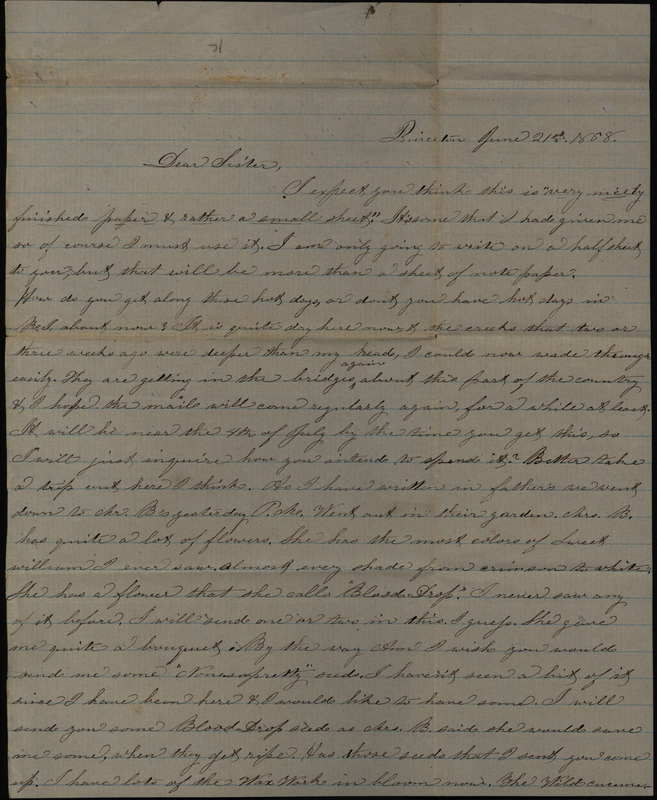 Princeton June 21st. 1868.
Dear Sister,
I expect you think this is "very nicely
finished paper & rather a small sheet!" It's some that I had given me
so of course I must use it. I am only going to write on a half sheet
to you, but that will be more than a sheet of note paper.
How do you get along these hot days, or dont you have hot days in
about now? It is quite dry here now & the creeks that two or
three weeks ago were deeper than my head, I could now wade through
easily. They are getting in the bridges again about this part of the country
& I hope the mails will come regularly again, for a while at least.
It will be near the 4th of July by the time you get this, so
I will just inquire how you intend to spend it? Better take
a trip out here I think. As I have written in father's we went
down to Mr. B's yesterday P.M. Went out in their garden. Mrs. B.
has quite a lot of flowers. She has the most colors of Sweet
william I ever saw, almost every shade from crimson to white.
She has a flower that she calls "Blood Drop." I never saw any
of it before. I will send one or two in this I guess. She gave
me quite a bouquet. By the way Am I wish you would
send me some "Nonesopretty" seeds. I haven't seen a bit of it
since I have been here & I would like to have some. I will
send you some Blood Drop seed as Mrs. B. said she would save
me some, when they get ripe. Has those seeds that I sent you come
up. I have lots of the Wax Work in bloom now. The Wild cucum-